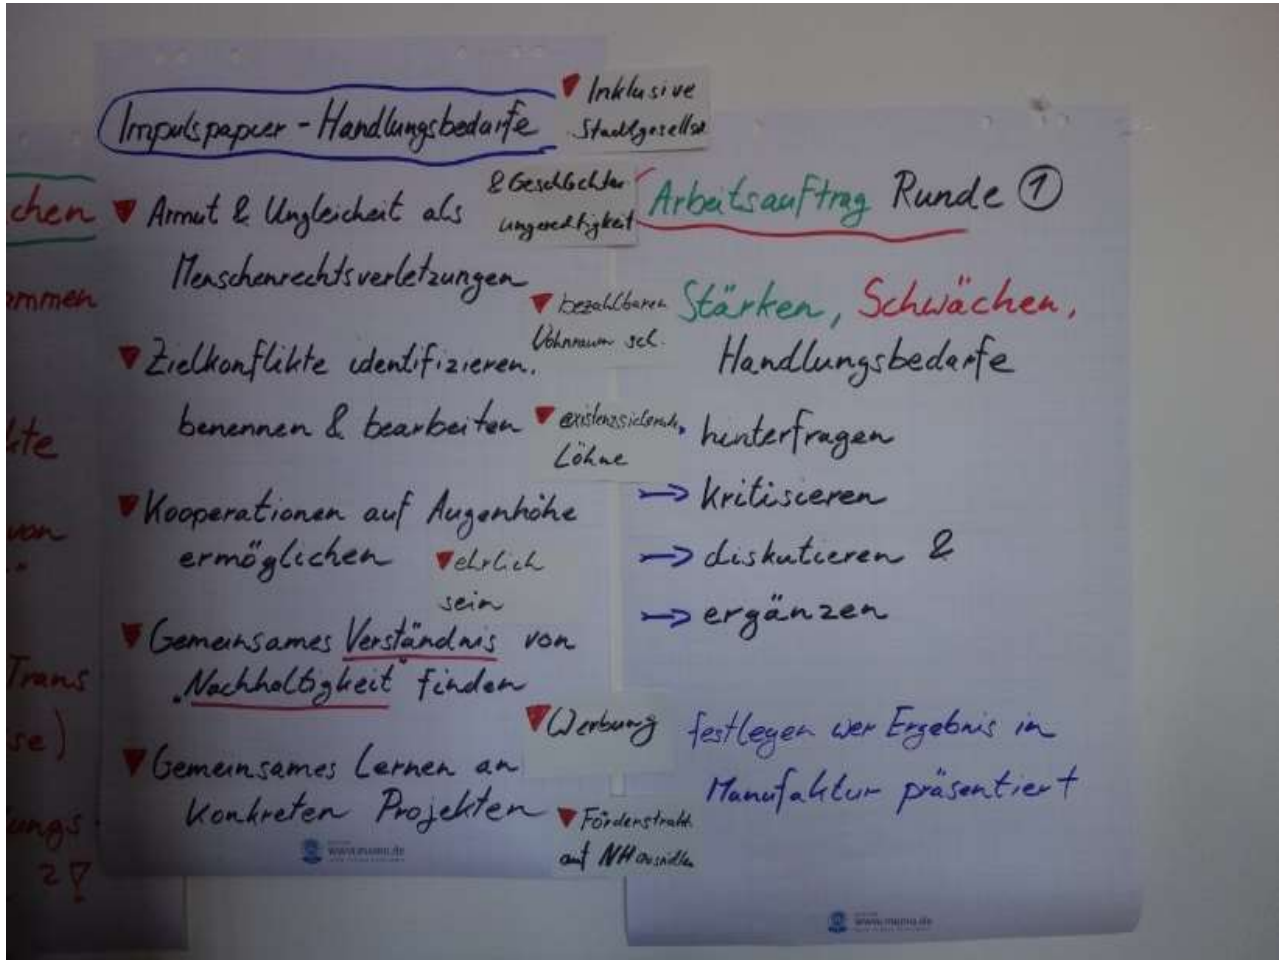 chen
ammen
kte
von
Trans
se)
ungs
2
Impulspapier - Handlungsbedarfe
▼ Armut & Ungleicheit als
& Geschlechter
ungerechtigkeit
Menschenrechtsverletzungen
▼ Zielkonflikte identifizieren,
benennen & bearbeiten
▼ Kooperationen auf Augenhöhe
ermöglichen
▼ ehrlich
sein
▼ Gemeinsames Verständnis von
"Nachhaltigkeit" finden
▼ Gemeinsames Lernen an
Konkreten Projekten
www.memo.de
▼ Inklusive
Stadtgesellsch
▼ bezahlbaren
Wohnraum sch.
▼ existenzsichernde
Löhne
▼ Werbung
▼ Förderstrukt.
auf NH
Arbeitsauftrag Runde 1
Stärken, Schwächen,
Handlungsbedarfe
hinterfragen
→ kritisieren
→ diskutieren &
→ ergänzen
festlegen wer Ergebnis in
Manufaktur präsentiert
www.memo.de